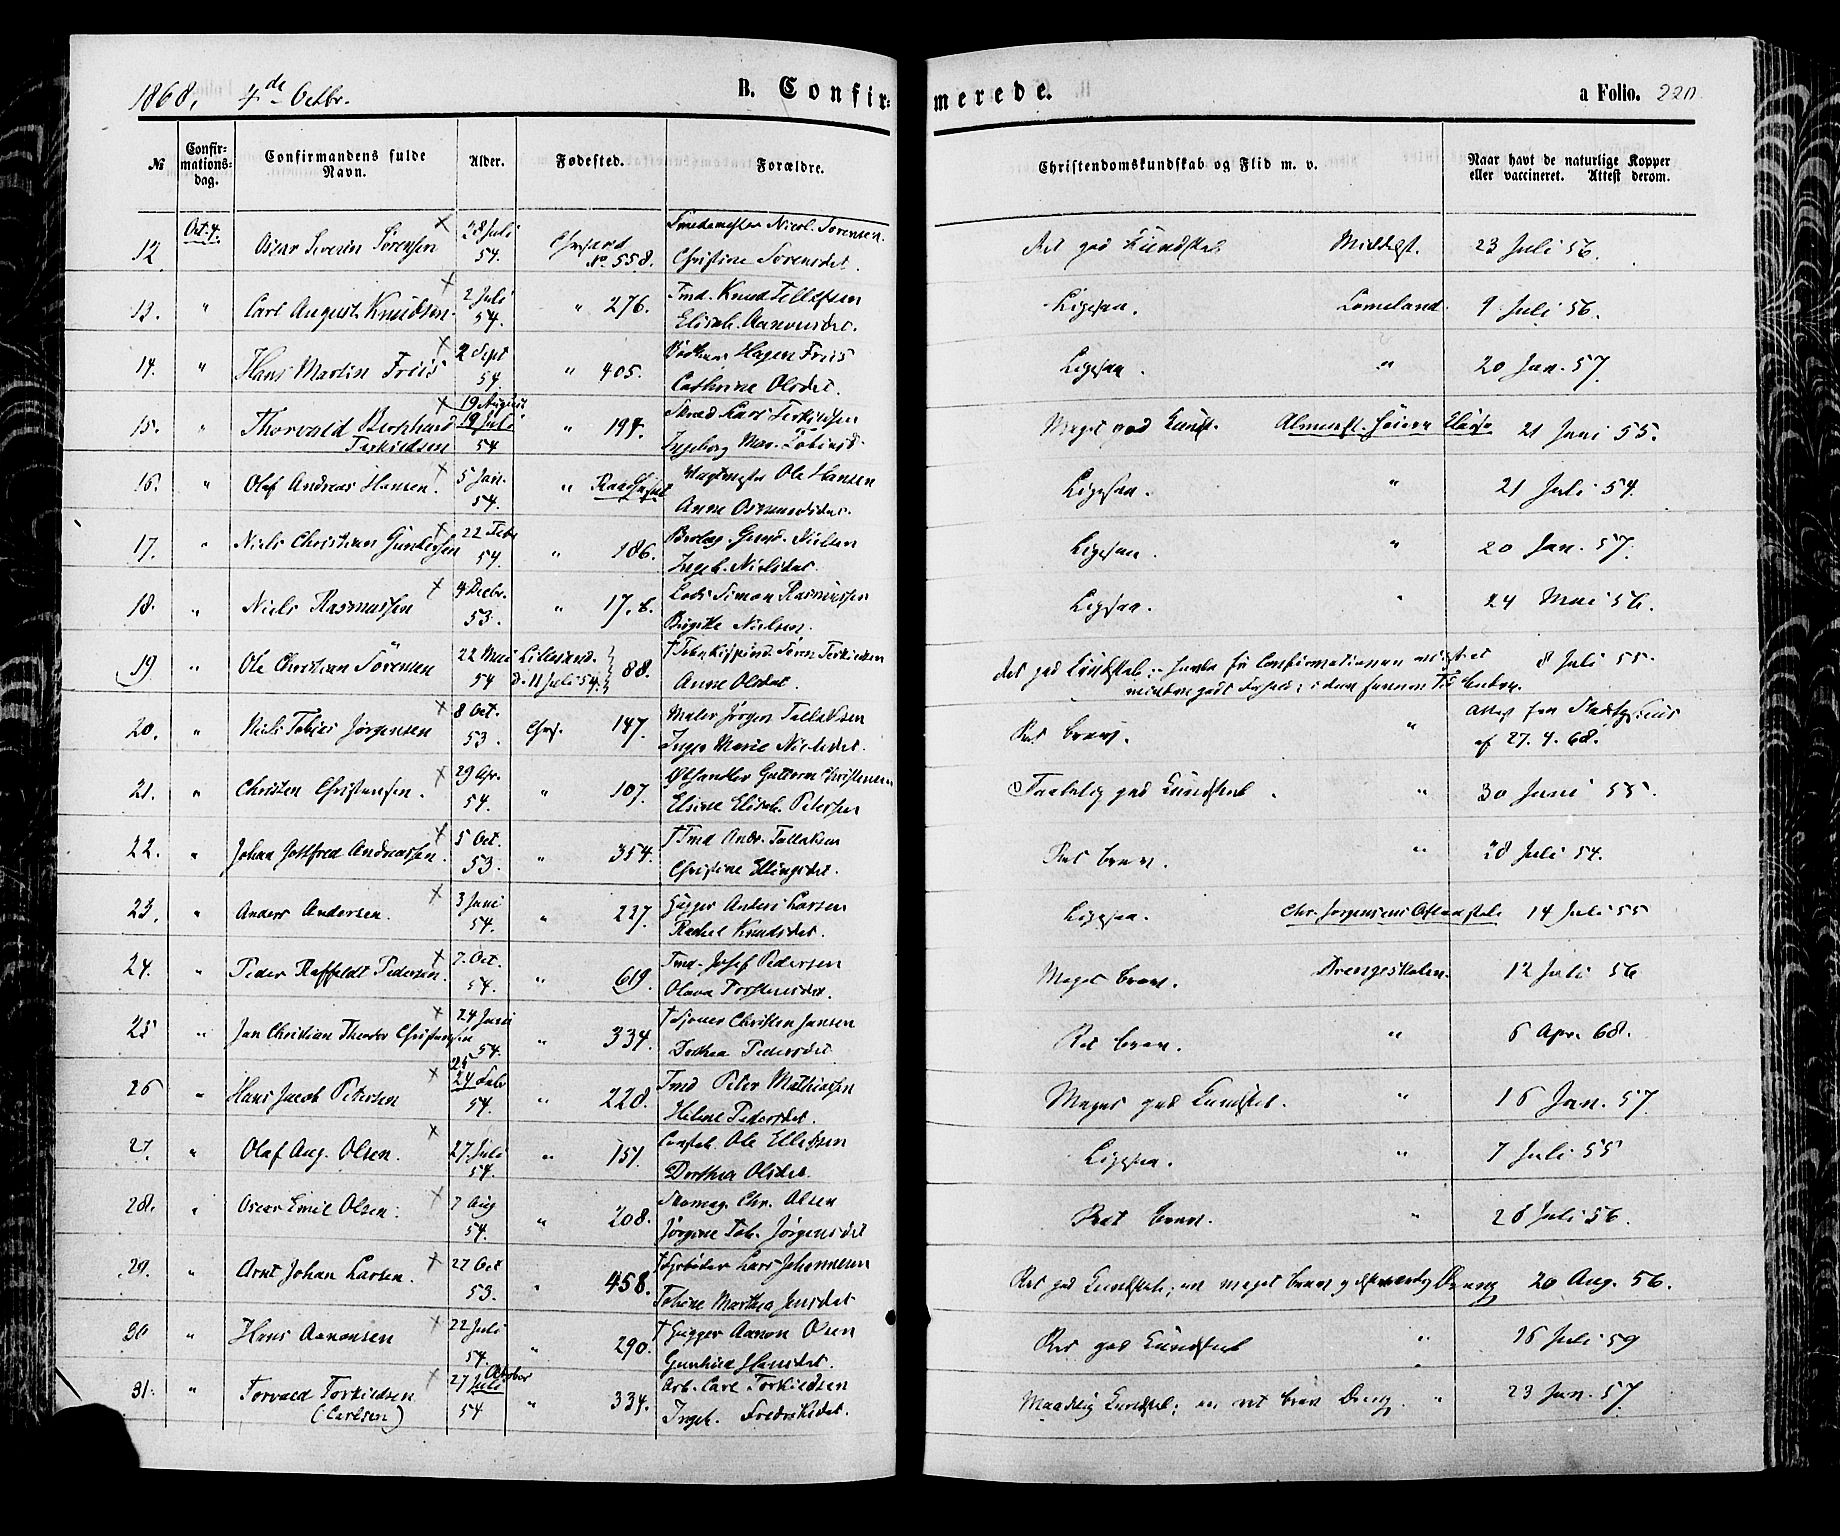 1868, 4de Octbr.
B. Confirmerede.
a Folio. 220.
№
Confirmationsdag.
Confirmandens fulde Navn.
Alder.
Fødested.
Forældre.
Christendomskundskab og Flid m. v.
Naar havt de naturlige Kopper eller vaccineret. Attest derom.
12. Oct. 4. Oscar Severin Sørensen 28 Juli 54. № 558. Nicol. Sørensen. Christine Sørensdet. Ret god Kundskab Middelst. 23 Juli 56.
13. " Carl August Knudsen. 2 Juli 54. " 276. Tmd. Knud Tellefsen Elisab. Aanonsdet. Ligesaa. Lomeland. 9 Juli 56.
14. " Hans Martin Friis 2 Sept 54. " 405. Hagen Friis Cathrine Olsdet. Ligesaa. " 20 Jan. 57.
15. " Thorvald Bernhard Terkildsen 19 August 19 Juli 54 " 194. Lars Terkildsen Ingeborg Mar. Tobiasd. Meget god Kundsk. Almuesk. Høiere Classe 21 Juni 55.
16. " Olaf Andreas Hansen. 5 Jan. 54. " Raadhuset Ole Hansen Anne Osmundsdet. Ligesaa. " 21 Juli 54.
17. " Niels Christian Gundersen 22 Febr 54. " 186. Gund. Nielsen Ingeb. Nielsdet. Ligesaa. " 20 Jan. 57.
18. " Niels Rasmussen 4 Decbr. 53. " 17. b. Lods Simon Rasmussen Birgitte Nielsen. Ligesaa. " 24 Mai 56.
19 " Ole Christian Sørensen 22 Mai 54 Lillesand. d. 11 Juli 54. 88. Søren Terkildsen Anne Olsdet. Ret god Kundskab; 8 Juli 55.
20. " Niels Tobias Jørgensen 8 Oct. 53. Chrs. 147. Maler Jørgen Tallaksen Inger Marie Nielsdet. Ret brav. " Attest fra af 27. 4. 68.
21. " Christen Christensen. 29 Apr. 54. " 107. Ølhandler Guttorm Christensen Elsine Elisab. Petersen Taalelig god Kundskab. " 30 Juni 55.
22. " Johan Gottfred Andreassen. 5 Oct. 53. " 354. † Tmd Andr. Tallaksen Christine Ellingsdet. Ret brav. " 28 Juli 54.
23. " Anders Andersen. 3 Juni 54. " 227. Anders Larsen Rachel Knudsdet. Ligesaa. Chr. Jørgensens Aftenskole 14 Juli 55
24. " Peder Raffeldt Pedersen. 7. Oct. 54. " 619. Tmd. Josef Pedersen Olava Torstensdet. Meget brav. Drengeskolen. 12 Juli 56
25 " Jan Christian Theodor Christensen 24 Juni 54. " 334. Christen Jansen Dorthea Pedersdet Ret brav. " 6 Apr. 68.
26 " Hans Jacob Petersen 25 24 Febr 54. " 228. Tmd Peter Mathiasen Helene Pedersdet. Meget god Kundskab. " 16 Jan. 57
27. " Olaf Aug. Olsen. 27 Juli 54. " 151. Constab. Ole Ellefsen Dorthea Olsdet. Ligesaa. " 7 Juli 55
28. " Oscar Emil Olsen. 7 Aug 54. " 208. Skomag. Chr. Olsen Jørgine Tob. Jørgensdet Ret brav. " 28 Juli 56.
29. " Arnt Johan Larsen. 27 Oct 53. " 458. Lars Johannesen Tobine Marthea Jensdet Ret god Kundskab; en meget brav og Dreng 20 Aug. 56.
30 " Hans Aanonsen 22 Juli 54. " 290. Aanon Olsen Gunhild Hansdet. Ret god Kundskab " 16 Juli 59
31. " Torvald Torkildsen (Carlsen) 27 Juli October 54 " 334. Arb. Carl Torkildsen Ingeb. Fredriksdet. Maadelig Kundskab; en ret brav Dreng. " 23 Jan. 57